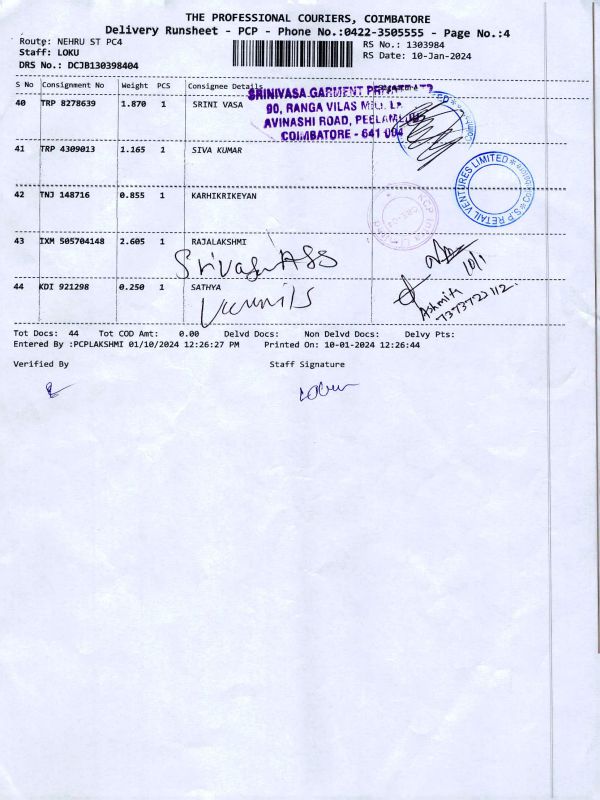 THE PROFESSIONAL COURIERS, COIMBATORE
Delivery Runsheet - PCP - Phone No.:0422-3505555 - Page No.:4
Route: NEHRU ST PC4
Staff: LOKU
DRS No.: DCJB130398404
RS No.: 1303984
RS Date: 10-Jan-2024
S No Consignment No Weight PCS Consignee Details
40 TRP 8278639 1.870 1 SRINI VASA
SRINIVASA GARMENT
90, RANGA VILAS
AVINASHI ROAD,
COIMBATORE - 641 004
41 TRP 4309013 1.165 1 SIVA KUMAR
S.P RETAIL VENTURES LIMITED
42 TNJ 148716 0.855 1 KARHIKRIKEYAN
43 IXM 505704148 2.605 1 RAJALAKSHMI
10/1
44 KDI 921298 0.250 1 SATHYA
Ashmita
Tot Docs: 44 Tot COD Amt: 0.00 Delvd Docs: Non Delvd Docs: Delvy Pts:
Entered By :PCPLAKSHMI 01/10/2024 12:26:27 PM Printed On: 10-01-2024 12:26:44
Verified By Staff Signature